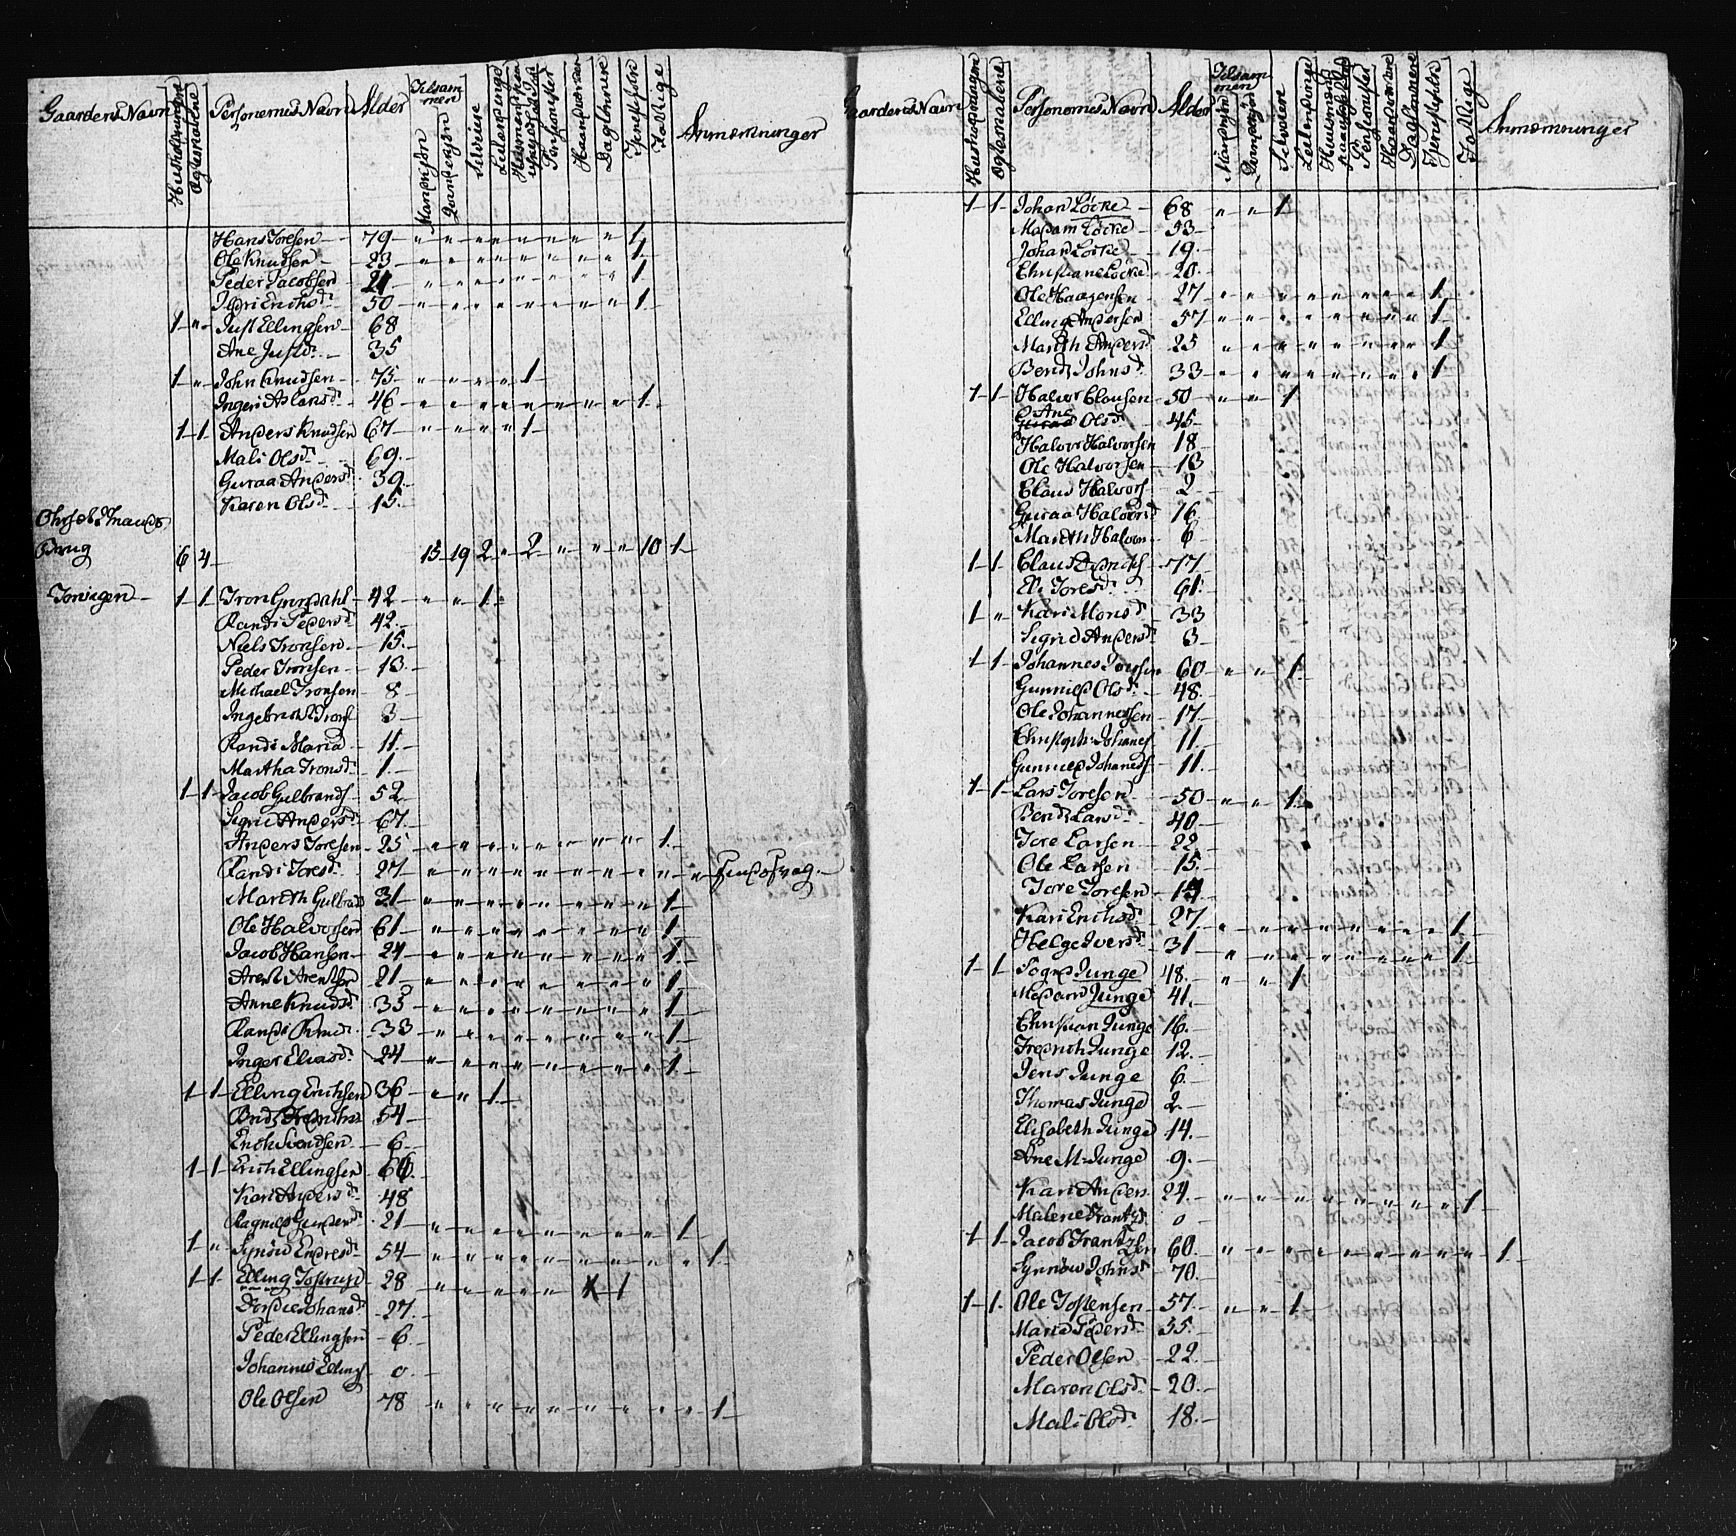 Gaardens Navn Huusholdningerne Personernes Navn Alder Tilsammen Mandkjøn Selveiere Leilændinge Pensionister Haandværker Daglønnere Tjenestefolk Fattige Anmærkninger
Hans Toresen - 79 - " " " " " " " " 1
Ole Knudsen - 23 - " " " " " " " " 1
Peder Jacobsen 21 " " " " " " " " 1
50 - " " " " " " " " 1
1 " Just Ellingsen - 68
Ane Justd. - 35
1 " John Knudsen - 75 - " " " " 1
Ingeri Aslansd. - 46 - " " " " " " " " 1
1 1 Anders Knudsen 67 - " " " " 1
Mali Olsd. 69.
Guraa Andersd. 39.
Karen Olsd. 15.
Brug 6 4 15 19 2 " 2 " " " 10 1
Torvigen - 1 1 Tron Grindahl - 42 - " " 1
Randi Pedersd. 42.
Niels Tronsen - 15.
Peder Tronsen - 13.
Michael Tronsen - 8
Ingebricht Trons. 3
Randi Maria - 11.
Martha Tronsd. 1.
1 1 Jacob Gulbrands. - 52
Sigrid Andersd. 67.
Anders Toresen - 25 " " " " " " " " 1
Randi Toresd. 27 - " " " " " " " " " "
Marith Gulbrands 31 - " " " " " " " " 1
Ole Halvorsen 61 - " " " " " " " " 1
Jacob Hansen - 24 " " " " " " " " 1
Arent Arentsen 21 - " " " " " " " " 1
Anne Knudsd. 35 - " " " " " " " " 1
Randi Knud. 33 " " " " " " " " 1
Inger Eliasd. 24 " " " " " " " " 1
1 1 Elling Erichsen 36 - " " 1
54
Erich Svendsen - 6
1 1 Erich Ellingsen
Kari Andersd. - 48
Ragnild Gunders. 21 - " " " " " " " " 1
1 " Synøw Endresd. 54 - " " " " " " " " " 1
1 1 Elling Tostrup - 28 - " " " " " 1
Dordie Johansd. 27.
Peder Ellingsen - 6.
Johannes Ellings. - 0
Ole Olsen 78 " " " " " " " " " 1
Gaardens Navn Huusholdningerne Personernes Navn Alder Tilsammen Mandkjøn Selveiere Leilændinge Pensionister Haandværkere Daglønnere Tjenestefolk Fattige Anmærkninger
1 1 Johan Löcke - 68 - " " 1
Madam Löcke - 53
Johan Löcke - 19.
Christiane Löcke 20.
Ole Haagensen 27 " " " " " " " " 1
Elling Andersen 57 " " " " " " " " 1
Marith Andersd. 25 " " " " " " " " 1
Bend. Johnsd. 33 - " " " " " " " " 1
1 1 Halvor Clausen 50 " " 1
Ane
Guraa Olsd. 45.
Halvor Halvorsen 18
Ole Halvorsen - 13
Claus Halvors. 2
Guraa Halvorsd. 16
Marith Halvor. 6
1 1 77
Eli Toresd. 61.
1 " Kari Monsd. 33
Sigrid Andersd. 3
1 1 Johannes Joensen 60 - " " 1
Gunnild Olsd. 48.
Ole Johannessen 17
Christoph. Johanes. 11.
Gunnild Johaneds. 11.
1 1 Lars Toresen - 50 - " " 1
Bend. Larsd. 40
Tore Larsen - 22
Ole Larsen - 15.
Tore Toresen -
Kari Erichsd. 27. " " " " " " " " 1
Helge Iversd. 31 " " " " " " " " 1
1 1 Sogned Junge 48. " " 1
Madam Junge 41.
Christian Junge 16.
Fredrich Junge 12.
Jens Junge 6.
Thomas Junge 2
Elisabeth Junge 14.
Ane M. Junge 9.
Kari Anders. 24. " " " " " " " " 1
Malene Frantzd. 0
1 1 Jacob Frantzsen 60. " " " " " " " " " 1
Synnöw Johnsd. 70.
1 1 Ole Tostensen - 57 - " " 1
Maria Pedersd. 55.
Peder Olsen - 22
Maren Olsd. - 20.
Mali Olsd. 18.